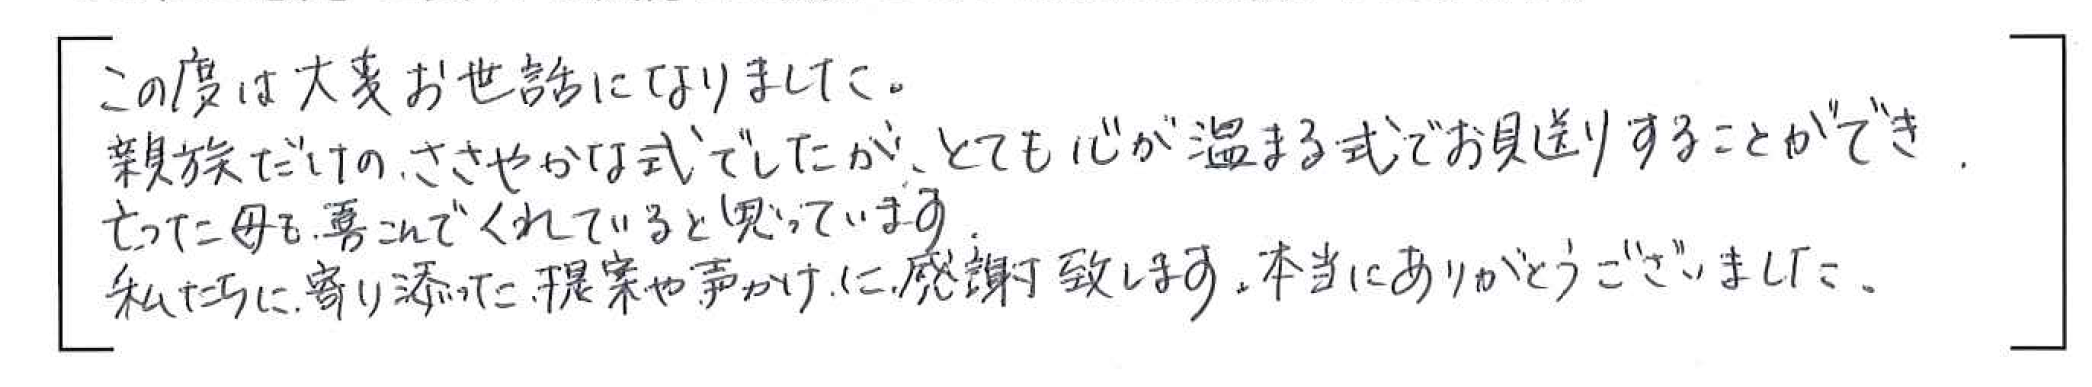 この度は大変お世話になりました。
親族だけの、ささやかな式でしたが、とても心が温まる式でお見送りすることができ、
亡った母も、喜こんでくれていると思っています。
私たちに、寄り添った、提案や声かけ、に、感謝致します。本当にありがとうございました。